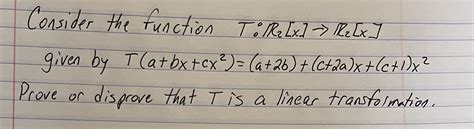 Consider the function T: ℝ₂[x] → ℝ₂[x]
given by T(a+bx+cx²) = (a+2b)+(c+2a)x+(c+1)x²
Prove or disprove that T is a linear transformation.